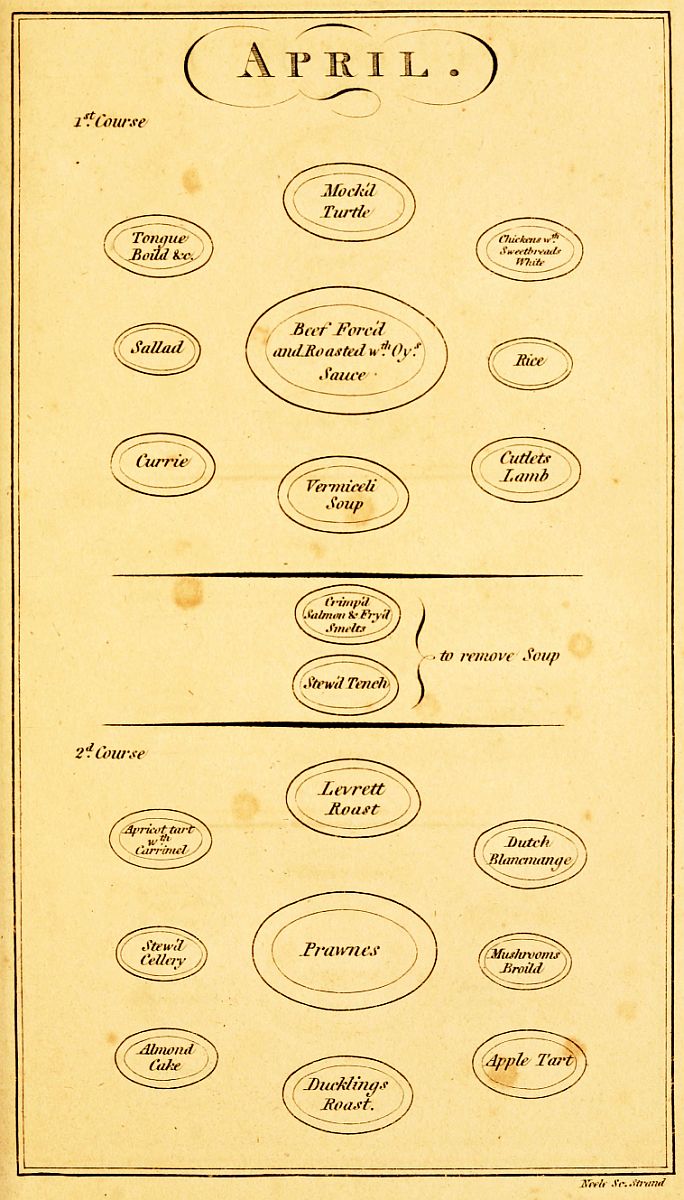 APRIL.
1st. Course
Mock'd
Turtle
Tongue
Boil'd &c.
Chickens wth.
Sweetbreads
White
Beef Forc'd
and Roasted wth. Oys.
Sauce
Sallad
Rice
Currie
Vermiceli
Soup
Cutlets
Lamb
Crimp'd
Salmon & Fry'd
Smelts
Stew'd Tench
to remove Soup
2d. Course
Levrett
Roast
Apricot tart
wth
Carrimel
Dutch
Blancmange
Prawnes
Stew'd
Cellery
Mushrooms
Broild
Almond
Cake
Ducklings
Roast.
Apple Tart
Neele Sc. Strand